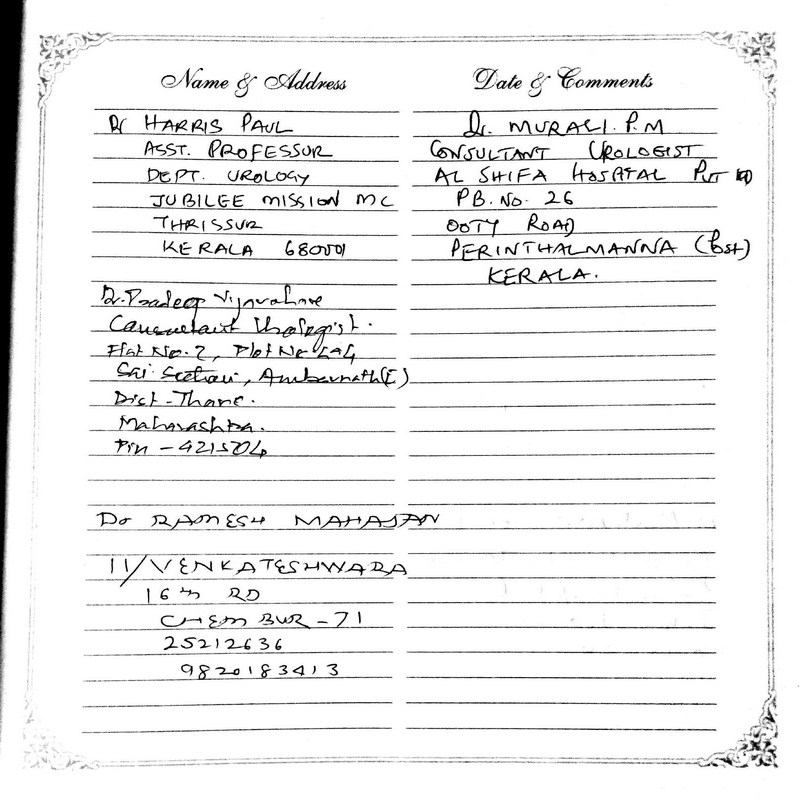 Name & Address
Dr HARRIS PAUL
ASST. PROFESSOR
DEPT. UROLOGY
JUBILEE MISSION MC
THRISSUR
KERALA 680001
Dr. Pradeep
Consultant Urologist.
Flat No. 2, Plot No
Sai , Ambernath (E)
Dist - Thane.
Maharashtra.
Pin - 421504
Dr RAMESH MAHAJAN
11/VENKATESHWARA
16th RD
CHEMBUR - 71
25212636
9820183413
Date & Comments
Dr. MURALI. P.M
CONSULTANT UROLOGIST
AL SHIFA HOSPITAL PVT
P.B. No. 26
OOTY ROAD
PERINTHALMANNA (Post)
KERALA.